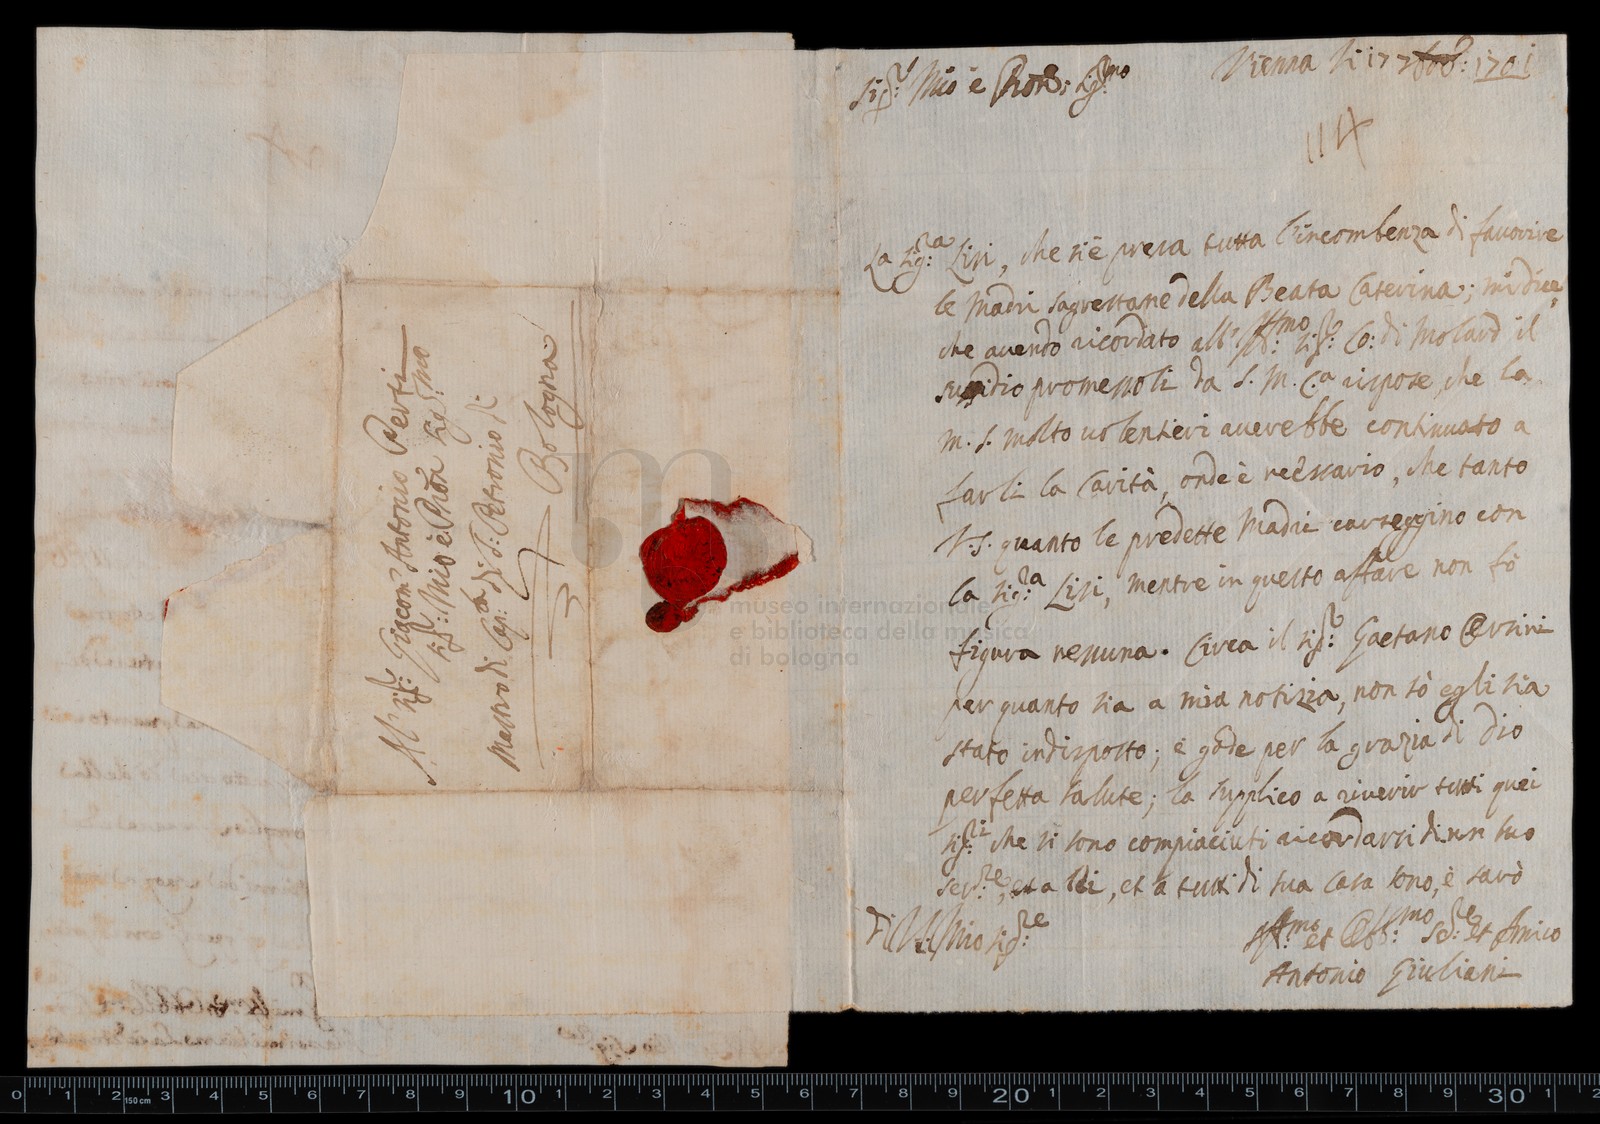 Al Sig.r Giacom' Antonio Perti
Sig.r Mio e Pron Sig.mo
Mastro di Cap.la di S. Petronio di
Bologna
museo internazionale
e biblioteca della musica
di bologna
Vienna li 17 1701
Sig.r Mio e Pron: Sig.mo
114
La Sig.ra Lisi, che si è presa tutta l'incombenza di favorire
le Madri Sagrestane della Beata Caterina; mi dice,
che avendo ricordato all' Sig.r Co: di Molard il
susidio promessoli da S. M. C.a rispose, che la
M. S. molto volentieri averebbe continuato a
farli la Carità, onde è necessario, che tanto
V.S. quanto le predette Madri carteggino con
la Sig.ra Lisi, mentre in questo affare non fò
figura nessuna. Circa il Sig.r Gaetano Orsini
per quanto sia a mia notizia, non sò egli sia
stato indisposto; e gode per la grazia di Dio
perfetta salute; la supplico a riverir tutti quei
Sig.ri che si sono compiaciuti ricordarsi di un suo
ser.re, et a lei, et a tutti di sua casa sono, e sarò
Di V.S. Mio Sig.re
Aff.mo et Obb.mo Se.re et Amico
Antonio Giuliani
0 1 2 150 cm 3 4 5 6 7 8 9 10 1 2 3 4 5 6 7 8 9 20 1 2 3 4 5 6 7 8 9 30 1 2